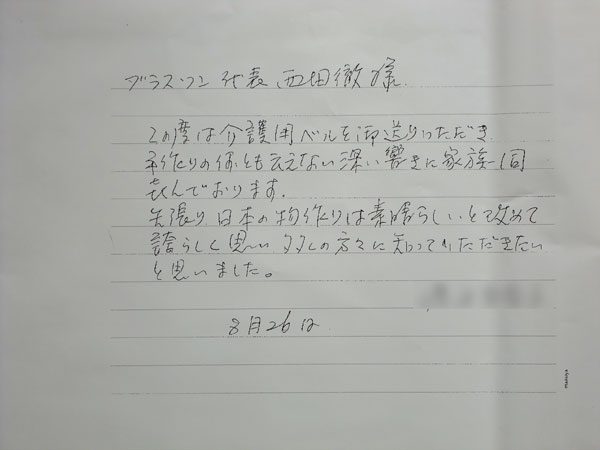 ブラス・ワン 代表 西田徹 様
この度は介護用ベルを御送りいただき
手作りの何とも云えない深い響きに家族一同
喜んでおります。
矢張り日本の物作りは素晴らしいと改めて
誇らしく思い多くの方々に知っていただきたい
と思いました。
8月26日